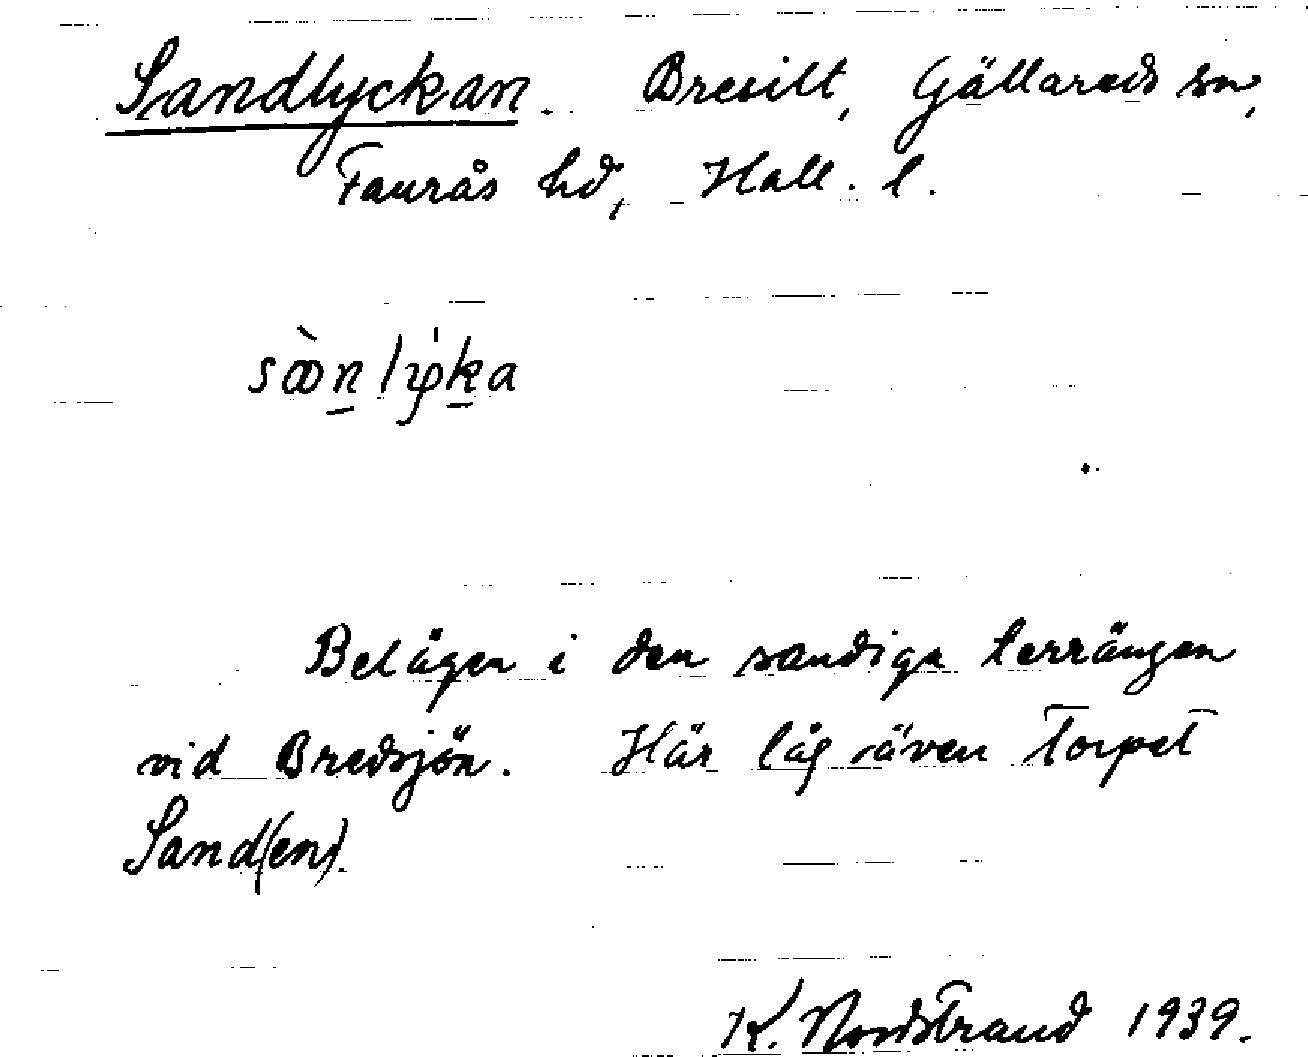 Sandlyckan. Bresilt, Gällareds sn,
Faurås hd, Hall. l.
Belägen i den sandiga terrängen
vid Bredsjön. Här låg även torpet
Sand(en).
K. Nordstrand 1939.